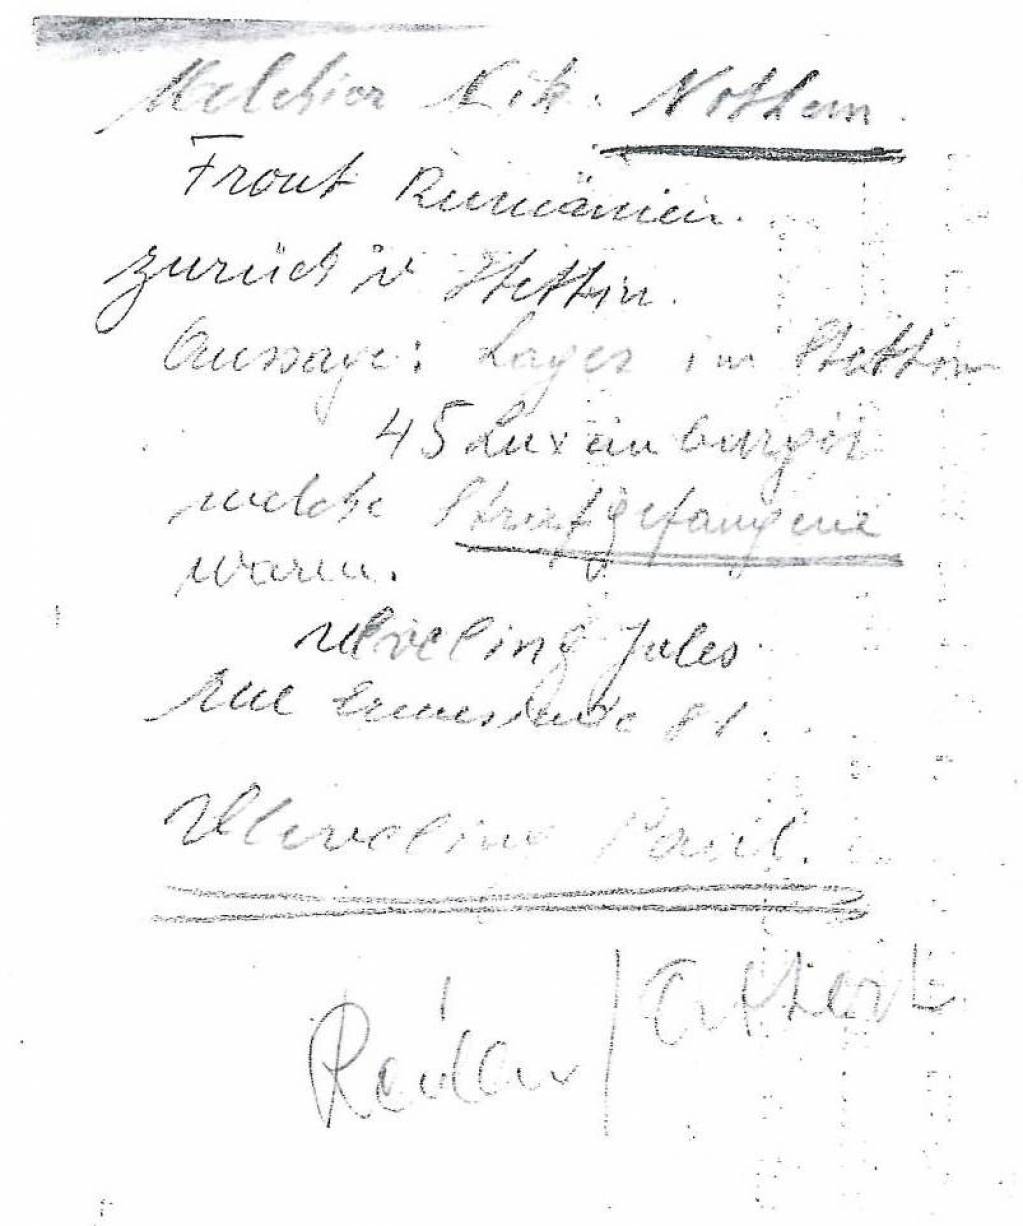 Melchior Nik. Nothum.
Front Rumänien.
zurück n Stettin.
Aussage: Lager in Stettin
45 Luxemburger
welche Strafgefangene
waren.
Ulveling Jules
rue Ermesinde 81.
Ulveling Paul.
Albert